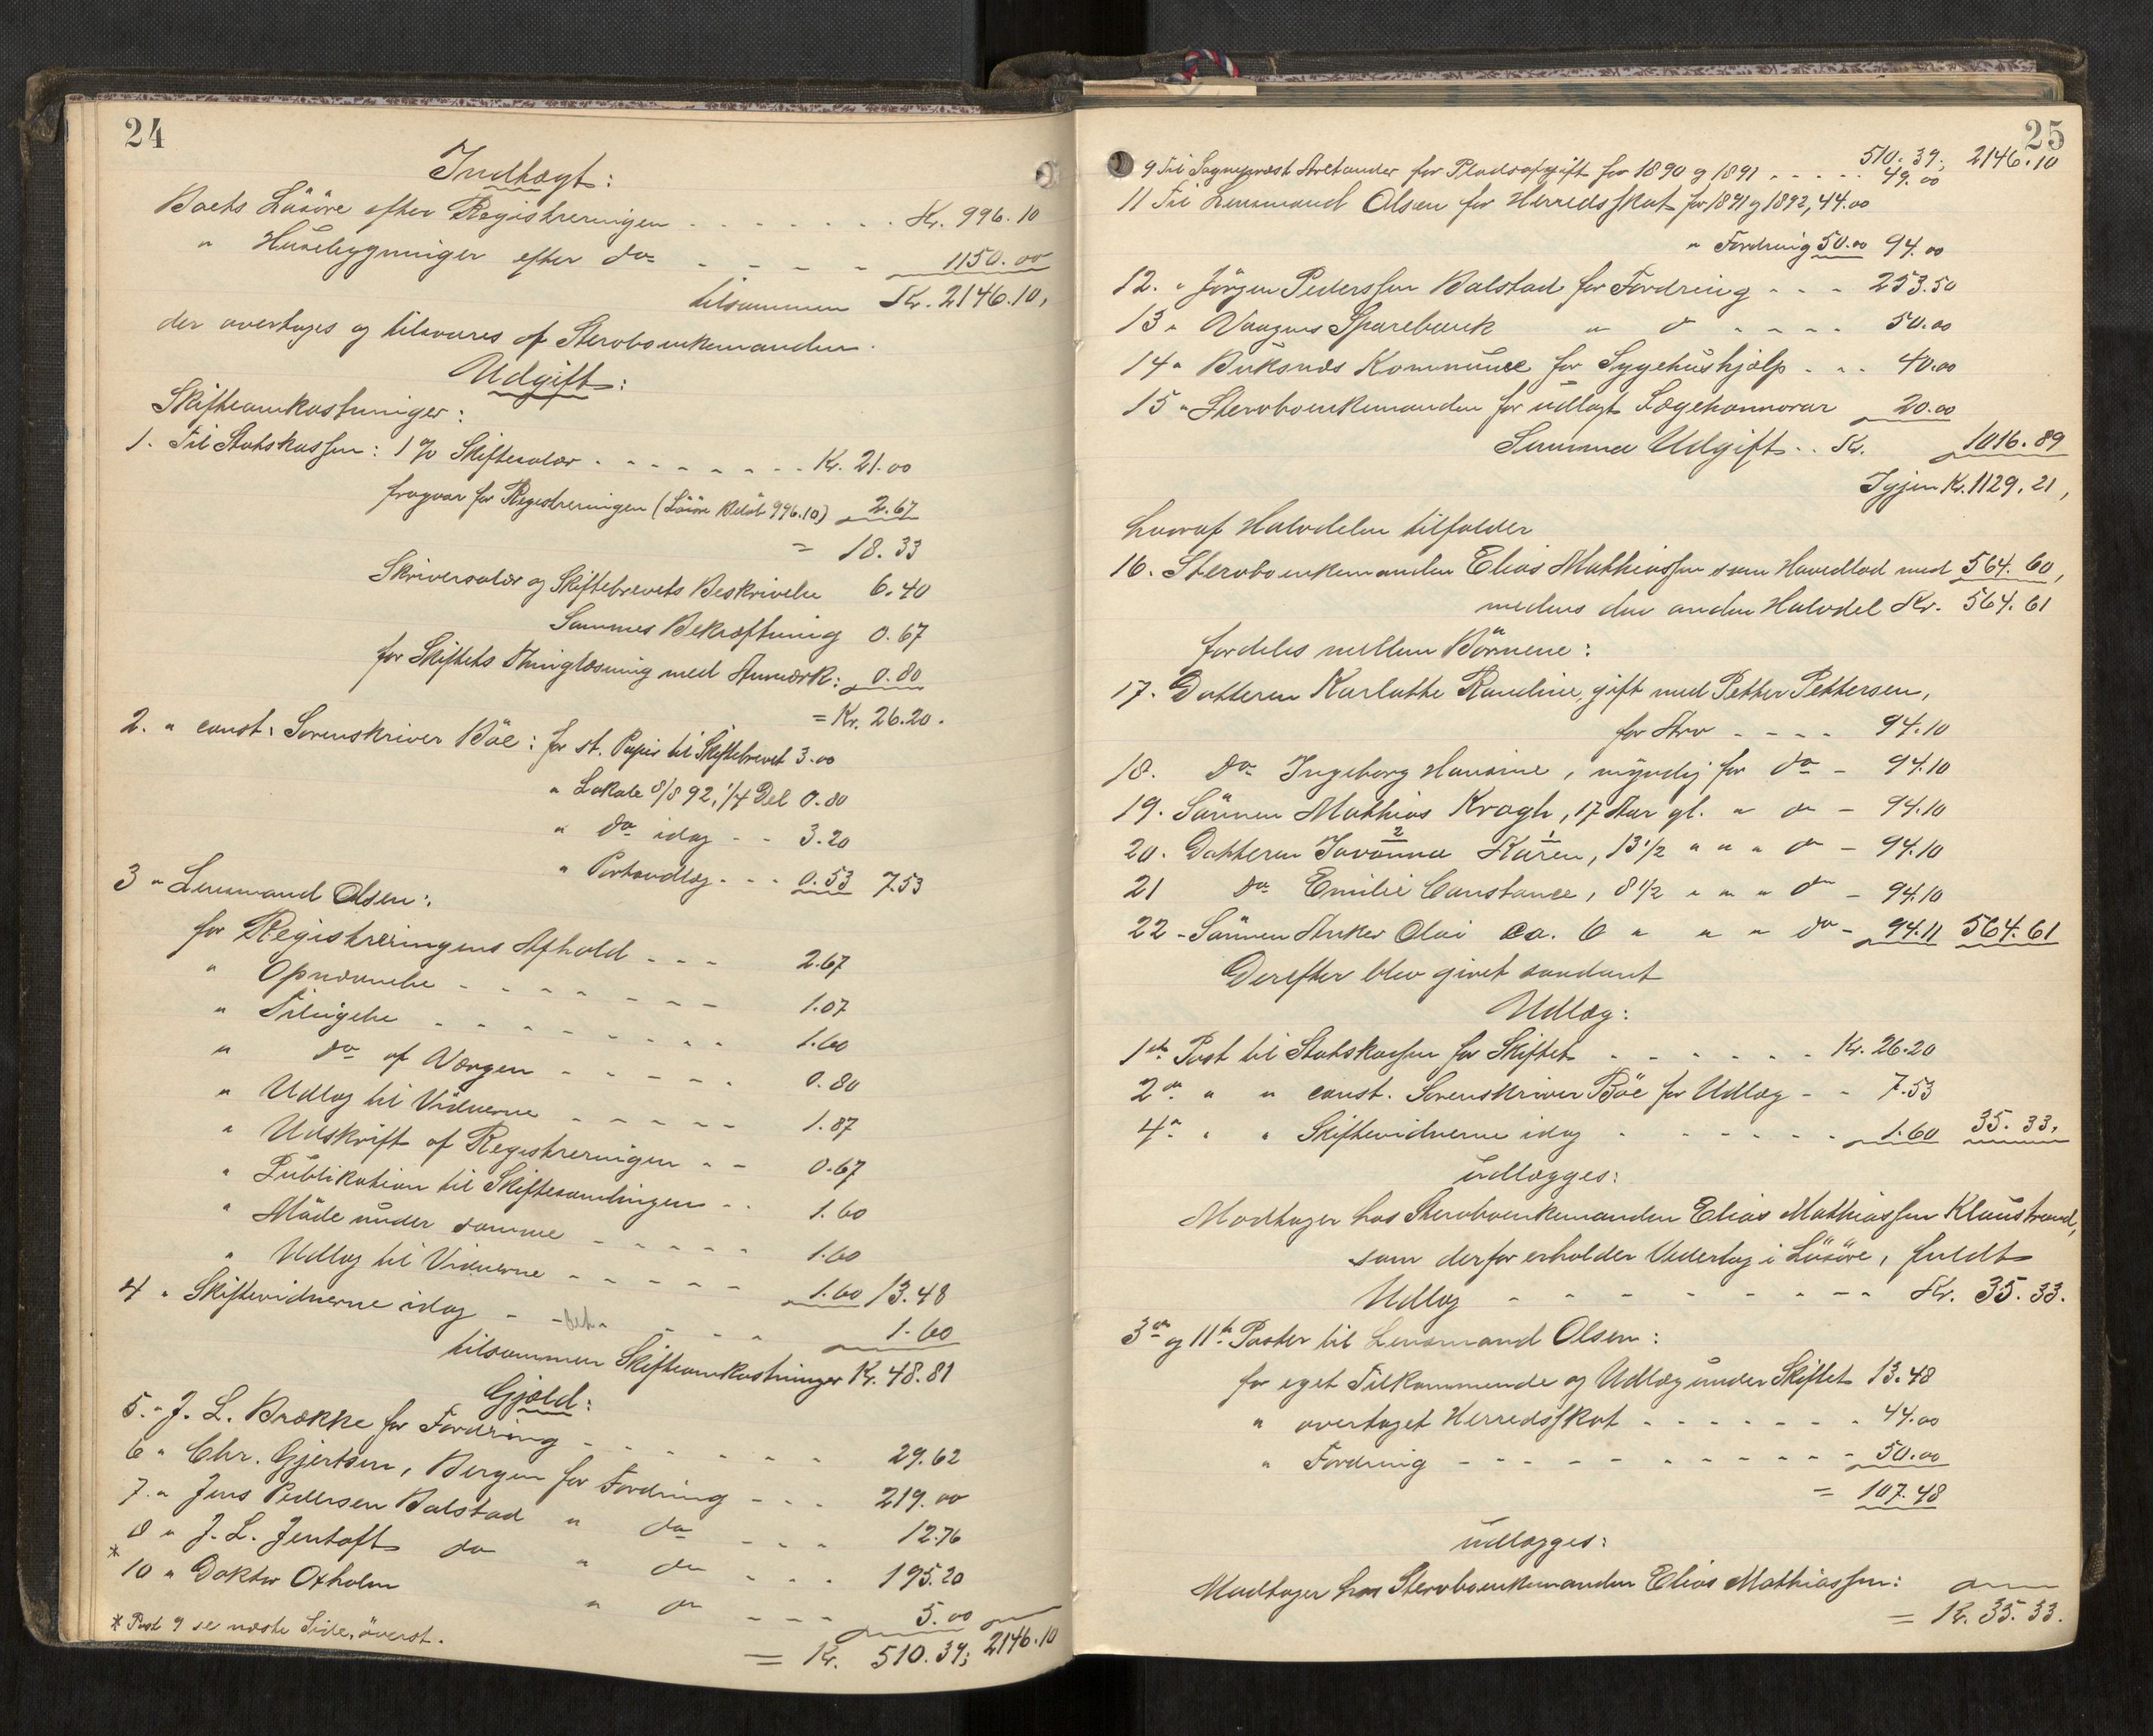 24
Indtægt:
Boets Løsøre efter Registreringen - - - - - - - Kr. 996.10
" Husebygninger efter do - - - - 1150.00
tilsammen Kr. 2146.10,
der overtages og tilsvares af Stervboenkemanden.
Udgift:
Skifteomkostninger:
1. Til Statskassen: 1 % Skiftesalær - - - - - - - - Kr. 21.00
fragaar for Registreringen (Løsøre Beløb 996.10) 2.67
= 18.33
Skriversalær og Skiftebrevets Beskrivelse 6.40
Sammes Bekræftning 0.67
for Skiftets Thinglæsning med Anmærk: 0.80
= Kr. 26.20.
2. " const. Sorenskriver Böe: for st. Papir til Skiftebrevet 3.00
" Lokale 8/8 92, 1/4 Del 0.80
" do idag - - 3.20
" Portoudlæg - - - 0.53 7.53
3 " Lensmand Olsen:
for Registreringens Afhold - - - 2.67
" Opnævnelse - - - - - - - 1.07
" Tilsigelse - - - - - - - - 1.60
" do af Værgen - - - - - 0.80
" Udlæg til Vidnerne - - - - - 1.87
" Udskrift af Registreringen - - 0.67
" Publikation til Skiftesamlingen - - 1.60
" Møde under samme - - - - - 1.60
" Udlæg til Vidnerne - - - - - 1.60 13.48
4 " Skiftevidnerne idag - - - - - 1.60
tilsammen Skifteomkostninger Kr. 48.81
Gjæld:
5. " J. L. Brække for Fordring - - - - - - 29.62
6 " Chr. Gjertsen, Bergen for Fordring - - - 219.00
7. " Jens Pedersen Balstad " do - - - 12.76
8 " J. L. Jentoft do " do - - - 195.20
*
10 " Doktor Oxholm " do - - - 5.00
* Post 9 se næste Side, øverst.
= Kr. 510.39; 2146.10
25
510.39; 2146.10
9 Til Sogneprest for Pladsafgift for 1890 og 1891 - - - - - 49.00
11 Til Lensmand Olsen for Herredsskat for 1891 og 1892, 44.00
" Fordring 50.00 94.00
12. " Jörgen Pederssen Balstad for Fordring - - - 253.50
13 " Vaagens Sparebank " do - - - - 50.00
14 " Buksnæs Kommune for Sygehushjælp - - - 40.00
15 " Stervboenkemanden for udlagt Lægehonnorar 20.00
Summa Udgift - - Kr. 1016.89
Igjen Kr. 1129.21,
hvoraf Halvdelen tilfalder
16. Stervboenkemanden Elias Mathiassen som Hovedlod med 564.60,
medens den anden Halvdel Kr. 564.61
fordeles mellem Börnene:
17. Datteren Karlotthe Randine, gift med Petter Pettersen,
for Arv - - - - 94.10
18. do Ingeborg Hansine, myndig for do - 94.10
19. Sönnen Mathias Kragh, 17 Aar gl. " do - 94.10
20. Datteren Jovanna 2 Karen 1, 13 1/2 " " " do - 94.10
21 do Emilie Constance, 8 1/2 " " " do - 94.10
22 - Sönnen Anker Olai ca. 6 " " " do - 94.11 564.61
Derefter blev givet saadant
Udlæg:
1ste Post til Statskassen for Skiftet - - - - - - - Kr. 26.20
2den " " const. Sorenskriver Böe for Udlæg - - 7.53
4de " " Skiftevidnerne idag - - - - - - - 1.60 35.33,
udlægges:
Modtager hos Stervboenkemanden Elias Mathiassen Klaustrand,
som derfor erholder Vederlag i Løsøre, fuldt
Udlæg - - - - - - - - - Kr. 35.33.
3die og 11te Poster til Lensmand Olsen:
for eget Tilkommende og Udlæg under Skiftet 13.48
" overtaget Herredsskat - - - - - - - 44.00
" Fordring - - - - - - - - - - - 50.00
= 107.48
udlægges:
Modtager hos Stervboenkemanden Elias Mathiassen:
= Kr. 35.33.